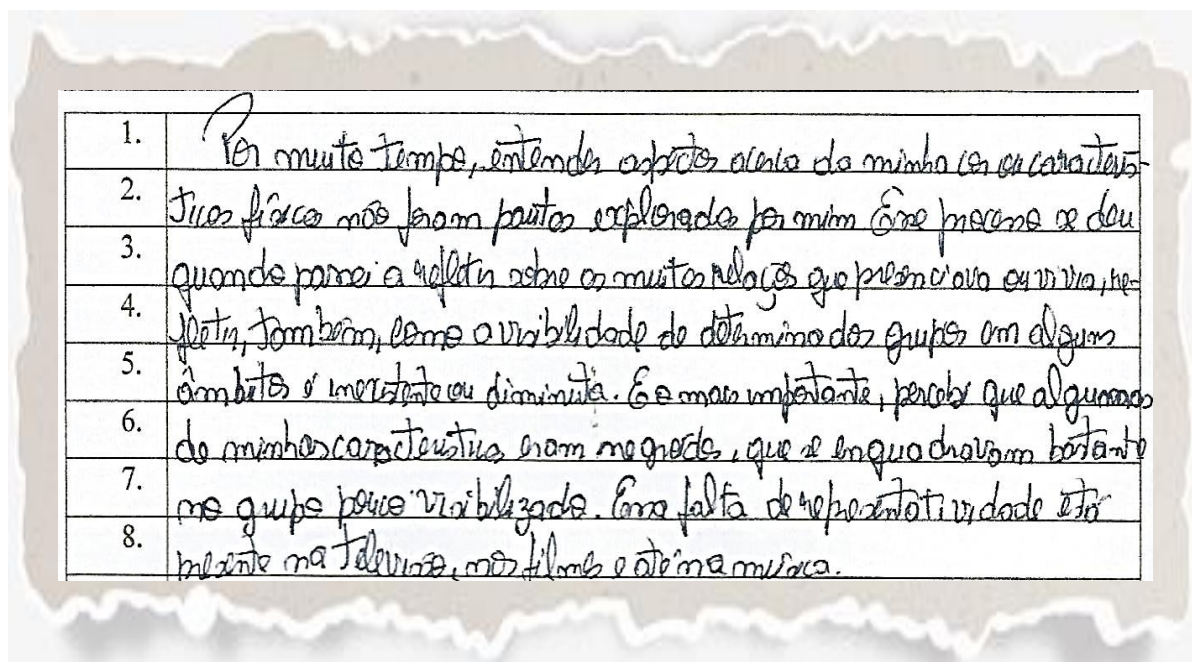 1. Por muito tempo, entender aspectos acerca da minha cor ou caracterís-
2. ticas físicas não foram pautas exploradas por mim Esse processo se deu
3. quando passei a refletir sobre as muitas relações que presenciava ou vivia, re-
4. fletir, também, como a visibilidade de determinados grupos em alguns
5. âmbitos é inexistente ou diminuta. E o mais importante, percebi que algumas
6. de minhas características eram negadas, que se enquadravam bastante
7. no grupo pouco visibilizado. Essa falta de representatividade está
8. presente na televisão, nos filmes e até na música.